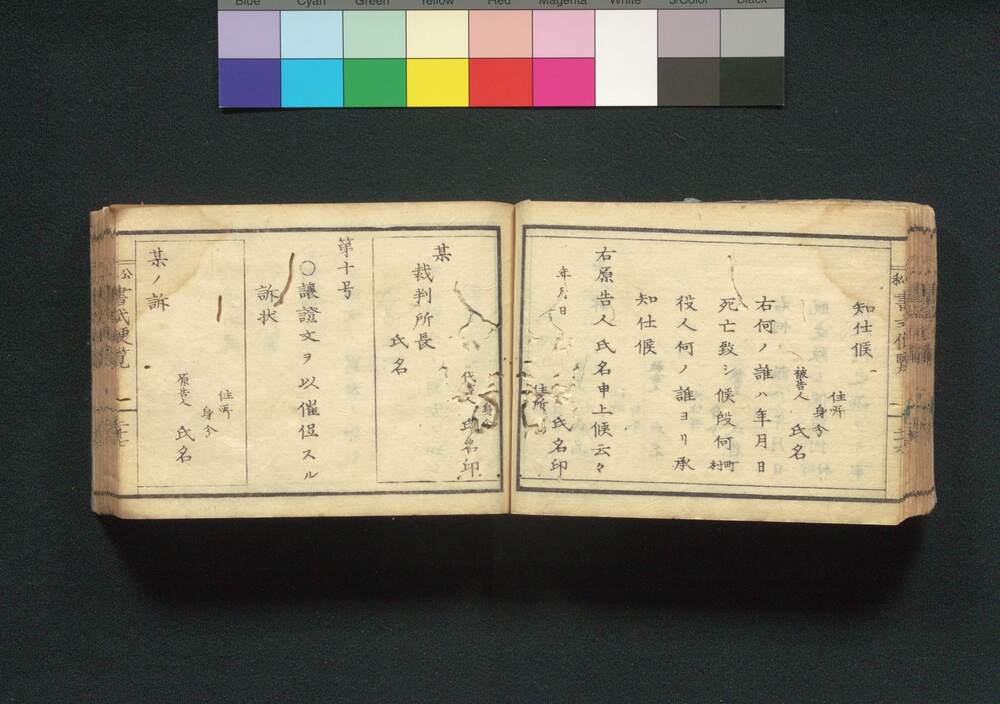 Blue Cyan Green Yellow Red Magenta White 3/Color Black
知仕候
住所
身分
被告人 氏名
右何ノ誰ハ年月日
死亡致シ候段何町村
役人何ノ誰ヨリ承
知仕候
右原告人氏名申上候云々
年月日
住所
氏名印
代書人 氏名印
某裁判所長
氏名
第十号
○譲證文ヲ以催促スル
訴状
住所
身分
原告人 氏名
某ノ訴
公 書式便覧